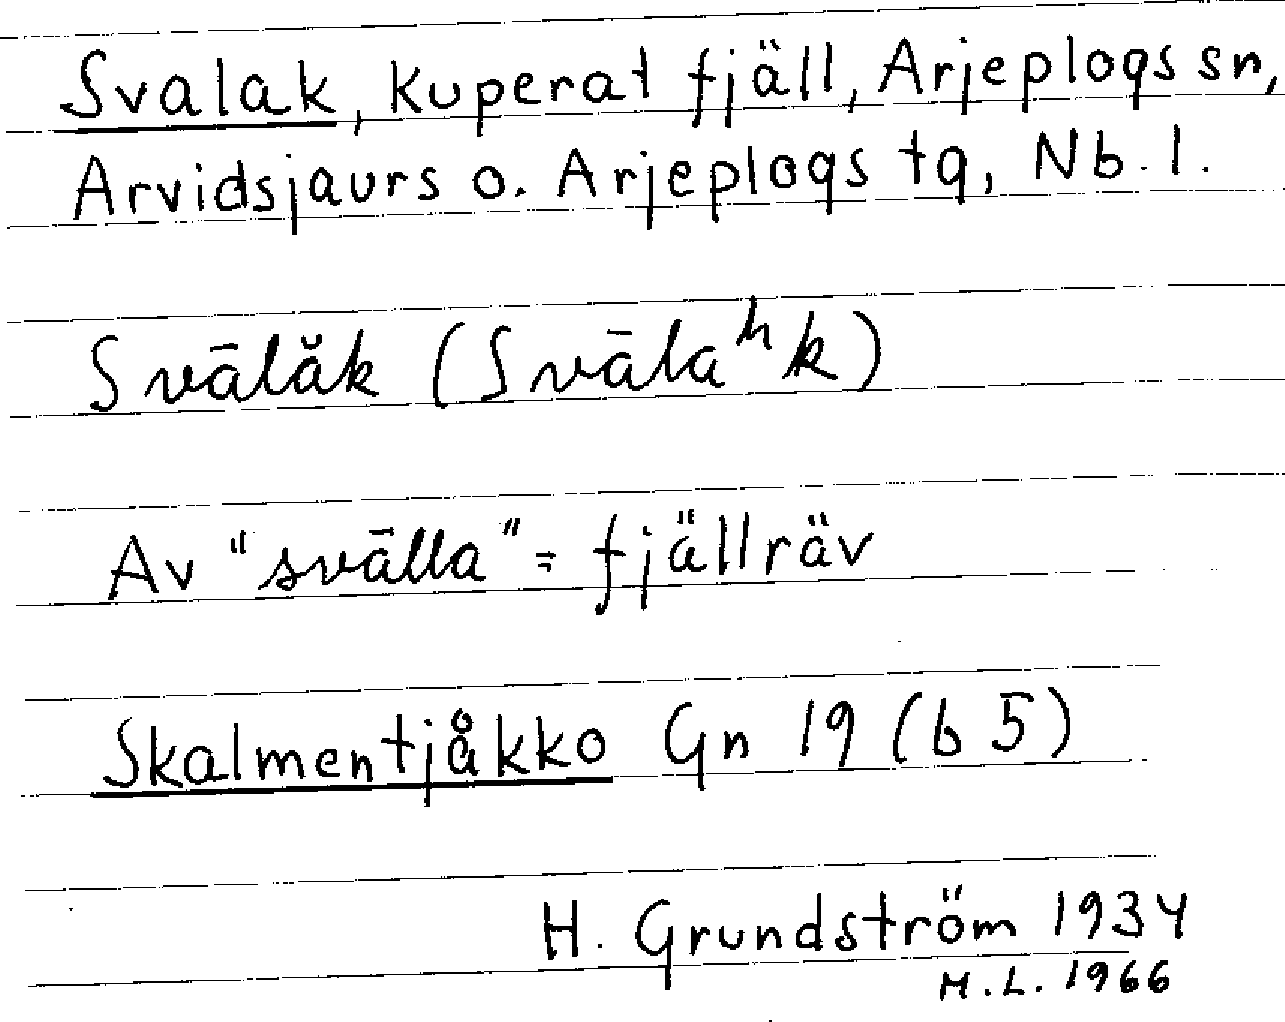 Svalak, kuperat fjäll, Arjeplogs sn,
Arvidsjaurs o. Arjeplogs tg, Nb. l.
Svālăk (Svālaʰk)
Av "svālla" = fjällräv
Skalmentjåkko Gn 19 (b 5)
H. Grundström 1934
H.L. 1966